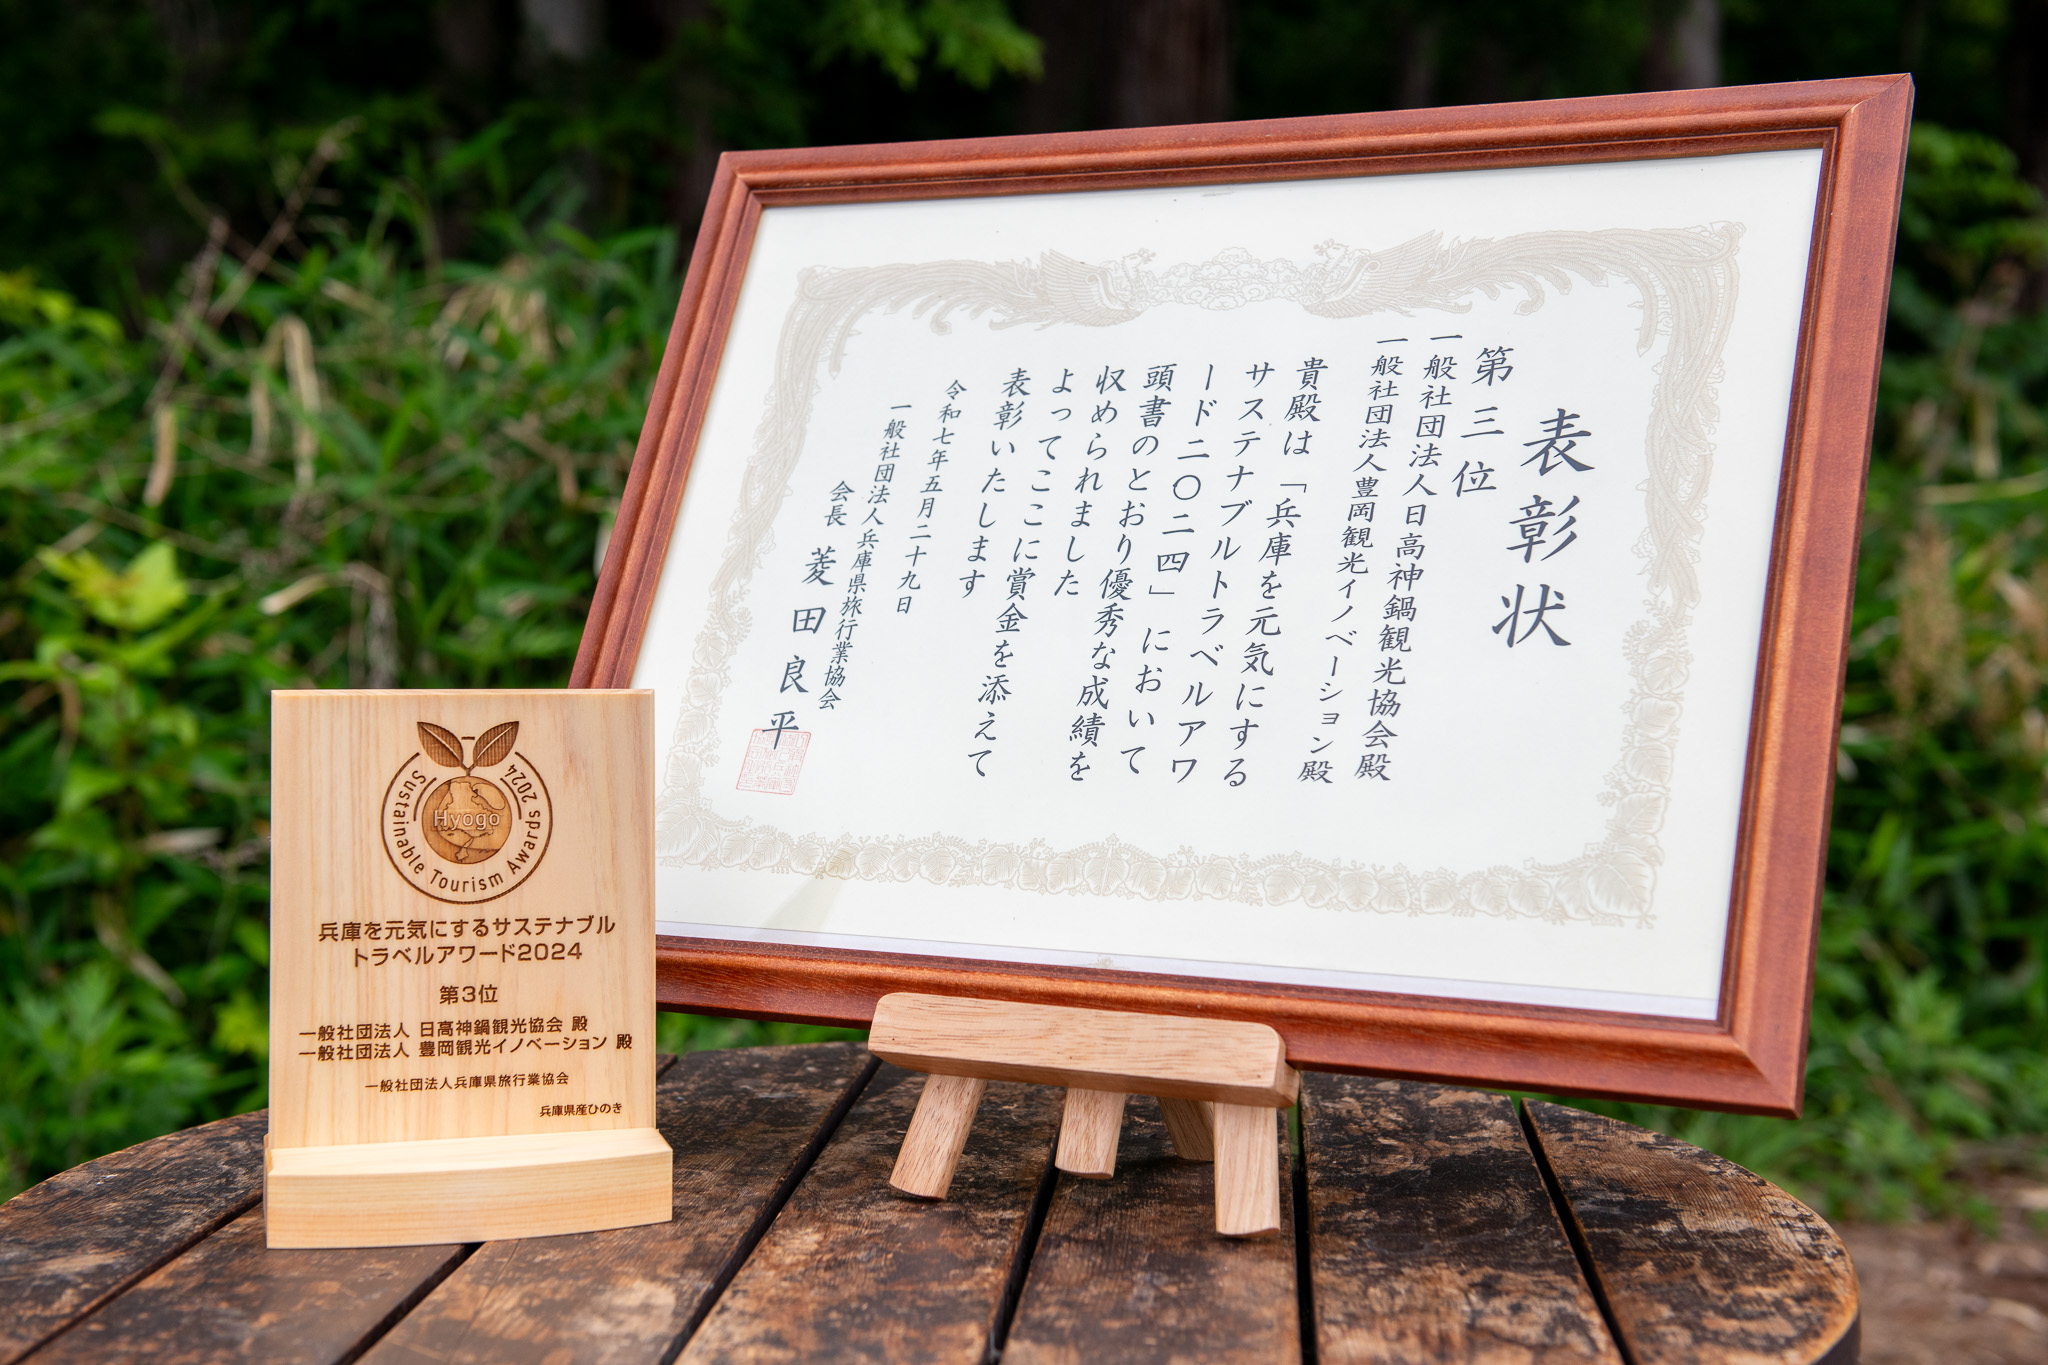 表彰状
第三位
一般社団法人日高神鍋観光協会殿
一般社団法人豊岡観光イノベーション殿
貴殿は「兵庫を元気にする
サステナブルトラベルアワ
ード二〇二四」において
頭書のとおり優秀な成績を
収められました
よってここに賞金を添えて
表彰いたします
令和七年五月二十九日
一般社団法人兵庫県旅行業協会
会長 菱田良平
Sustainable Tourism Awards 2024
Hyogo
兵庫を元気にするサステナブル
トラベルアワード2024
第3位
一般社団法人 日高神鍋観光協会 殿
一般社団法人 豊岡観光イノベーション 殿
一般社団法人兵庫県旅行業協会
兵庫県産ひのき